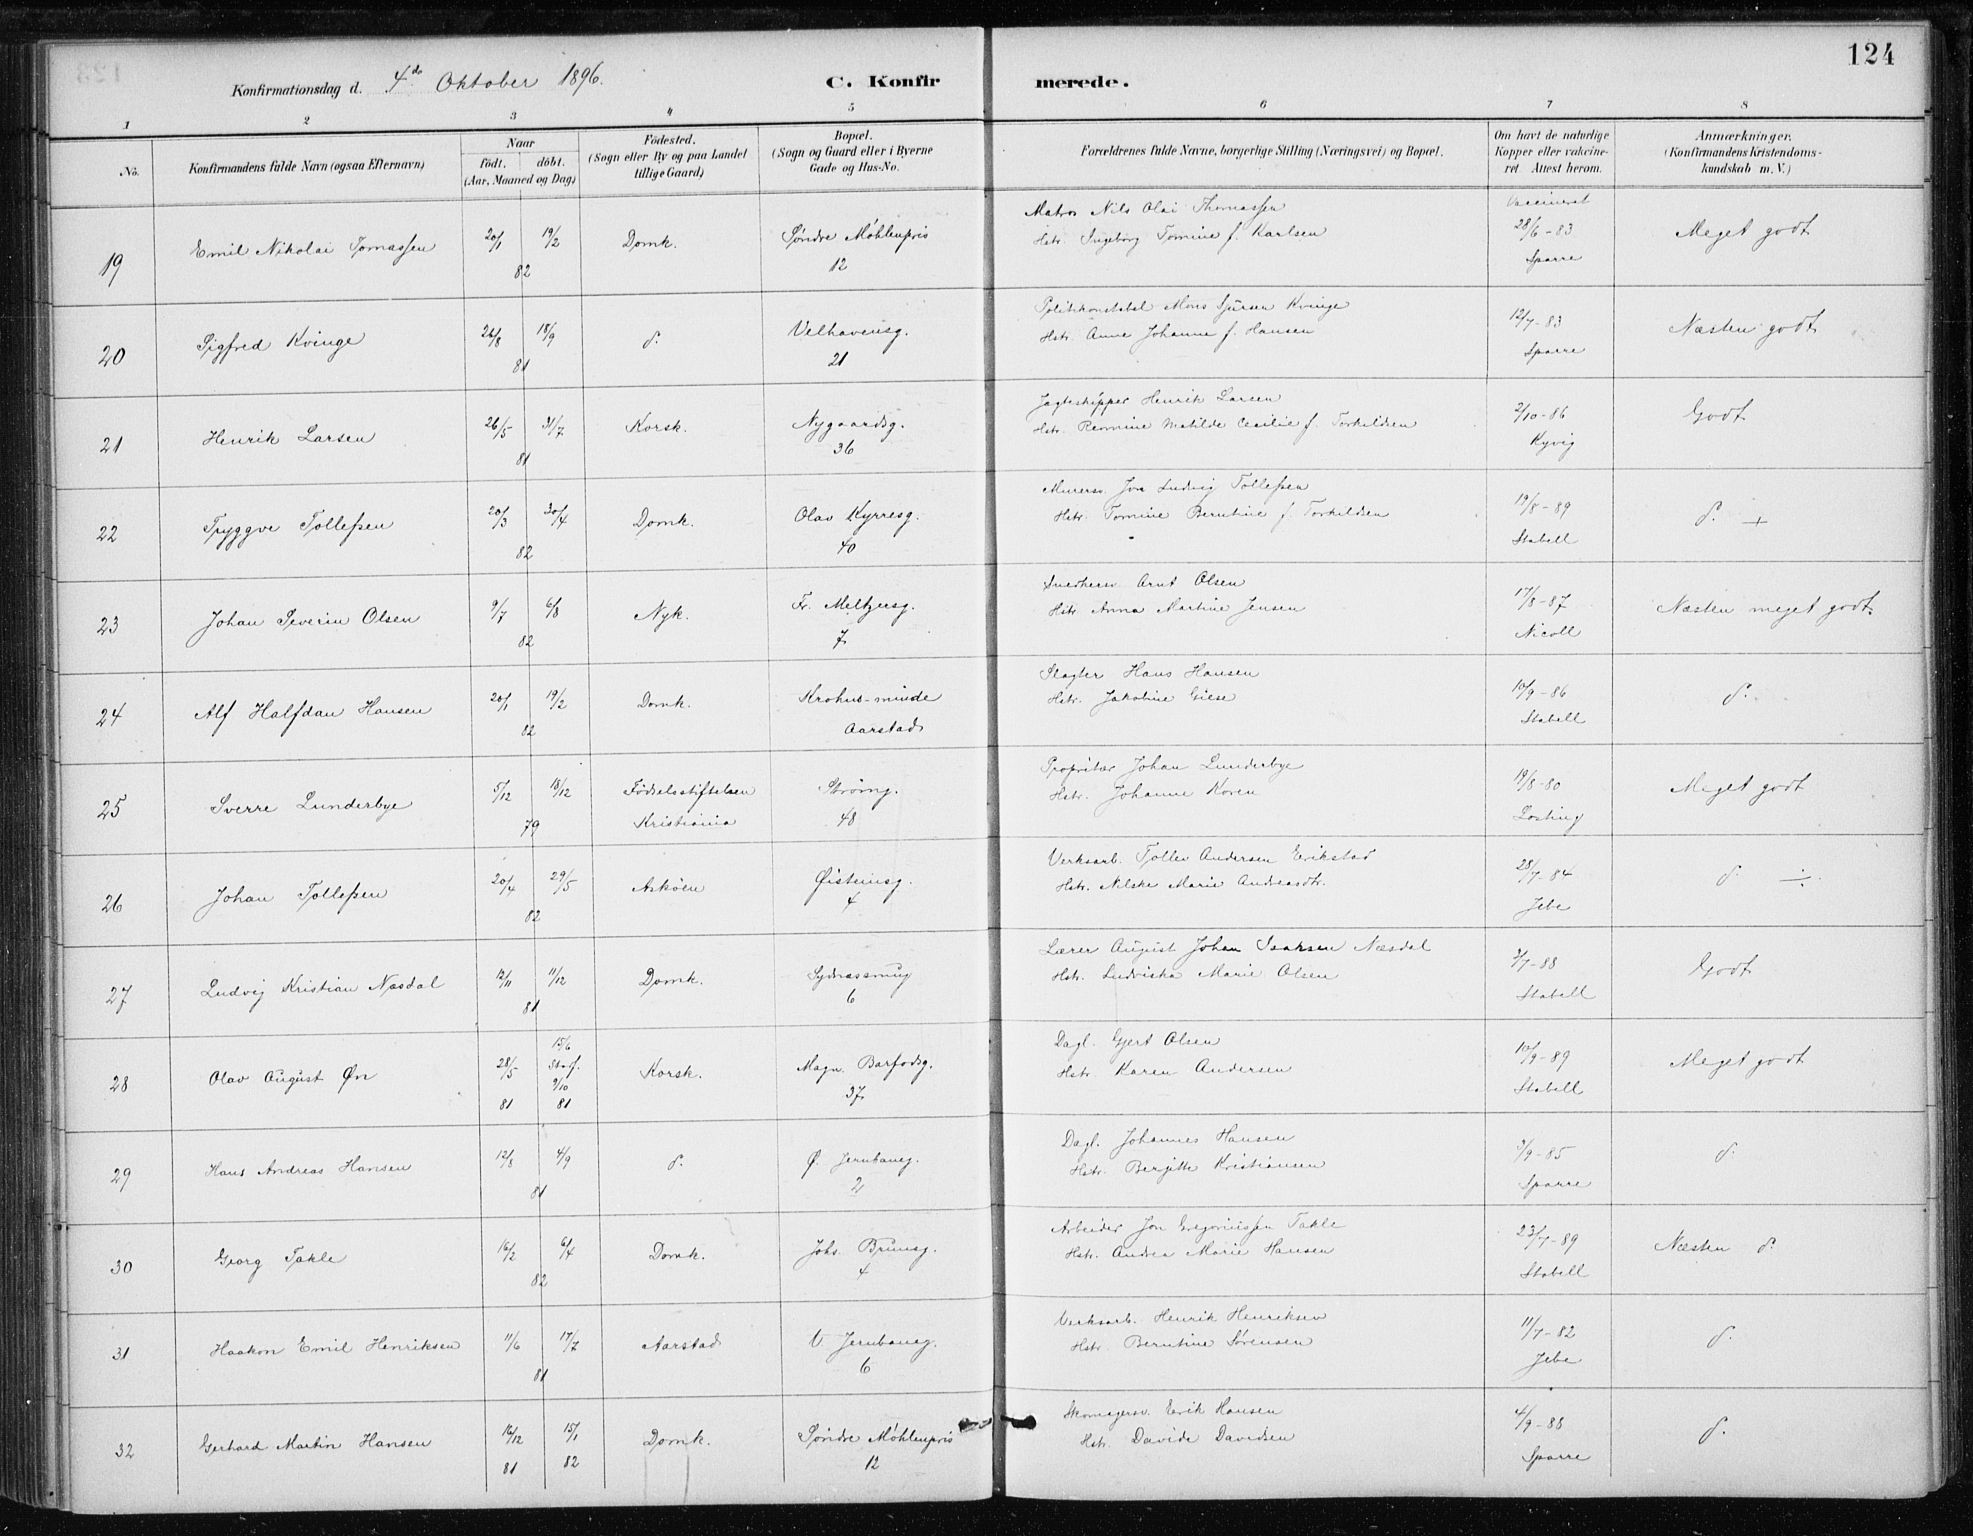 124
Konfirmationsdag d. 4de Oktober 1896.
C. Konfirmerede.
1 2 3 4 5 6 7 8
No.
Konfirmandens fulde Navn (ogsaa Efternavn)
Naar
födt. döbt.
(Aar, Maaned og Dag)
Födested.
(Sogn eller By og paa Landet
tillige Gaard)
Bopæl.
(Sogn og Gaard eller i Byerne
Gade og Hus-No.
Forældrenes fulde Navne, borgerlige Stilling (Næringsvei) og Bopæl.
Om havt de naturlige
Kopper eller vakcine-
ret Attest herom.
Anmærkninger.
(Konfirmandens Kristendoms-
kundskab m. V.)
19 Emil Nikolai Tomassen 20/1 19/2 82 Domk. Søndre Møhlenpris 12
Matros Nils Olai Thomassen
Hstr. Ingeborg Tomine f. Karlsen
Vaccineret 28/6-83 Sparre
Meget godt
20 Sigfred Kvinge 26/8 18/9 81 d. Velhavensg. 21
Politikonstabel Mons Sjursen Kvinge
Hstr. Anne Johanne f. Hansen
12/7-83 Sparre
Næsten godt
21 Henrik Larsen 26/5 31/7 81 Korsk. Nygaardsg. 36
Jagteskipper Henrik Larsen
Hstr. Rermine Matilde Cecilie f. Torkildsen
2/10-86 Kyvig
Godt
22 Tryggve Tollefsen 20/3 30/4 82 Domk. Olav Kyrresg. 40
Murersv. Jon Ludvig Tollefsen
Hstr. Tomine Berntine f. Torkildsen
19/8-89 Stabell
d. +
23 Johan Severin Olsen 9/7 6/8 82 Nyk. Fr. Meltzersg. 7
Snedkersv. Arnt Olsen
Hstr. Anna Martine Jensen
17/8-87 Nicoll
Næsten meget godt
24 Alf Halfdan Hansen 20/1 19/2 82 Domk. Krohns-minde Aarstad
Slagter Hans Hansen
Hstr. Jakobine Giese
10/9-86 Stabell
d.
25 Sverre Lunderbye 5/12 18/12 79 Födselsstiftelsen Kristiania Strømg. 48
Propritær Johan Lunderbye
Hstr. Johanne Koren
19/8-80 Losting
Meget godt
26 Johan Tollefsen 20/4 29/5 82 Askøen Øisteinsg. 4
Verksarb. Tollev Andersen Erikstad
Hstr. Nilske Marie Andreasdtr.
28/7-84 Jebe
d. ÷
27 Ludvig Kristian Næsdal 12/11 11/12 81 Domk. Sydnæssmug 6
Lærer August Johan Isaksen Næsdal
Hstr. Ludviska Marie Olsen
2/7-88 Stabell
Godt
28 Olav August Øn 28/5 81 15/6 Stadf. 9/10 81 Korsk. Magn. Barfodsg. 37
Dagl. Gjert Olsen
Hstr. Karen Andersen
10/9-89 Stabell
Meget godt
29 Hans Andreas Hansen 12/8 4/9 81 d. Ø. Jernbaneg. 2
Dagl. Johannes Hansen
Hstr. Bergitte Kristiansen
3/9-85 Sparre
d.
30 Georg Takle 16/2 6/4 82 Domk. Johs. Brunsg. 4
Arbeider Jon Gregoriussen Takle
Hstr. Andrea Marie Hansen
23/7-89 Stabell
Næsten d.
31 Haakon Emil Henriksen 11/6 17/7 81 Aarstad V. Jernbaneg. 6
Verksarb. Henrik Henriksen
Hstr. Berntine Sørensen
11/7-82 Jebe
d.
32 Gerhard Martin Hansen 16/12 81 15/1 82 Domk. Søndre Møhlenpris 12
Skomagersv. Erik Hansen
Hstr. Davide Davidsen
4/9-88 Sparre
d.